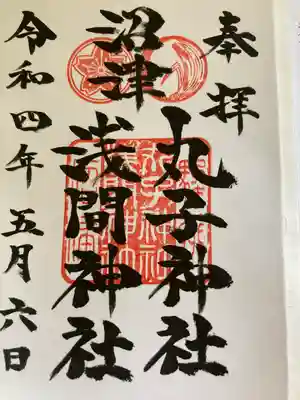 奉拝
丸子神社
沼津
浅間神社
令和四年五月六日